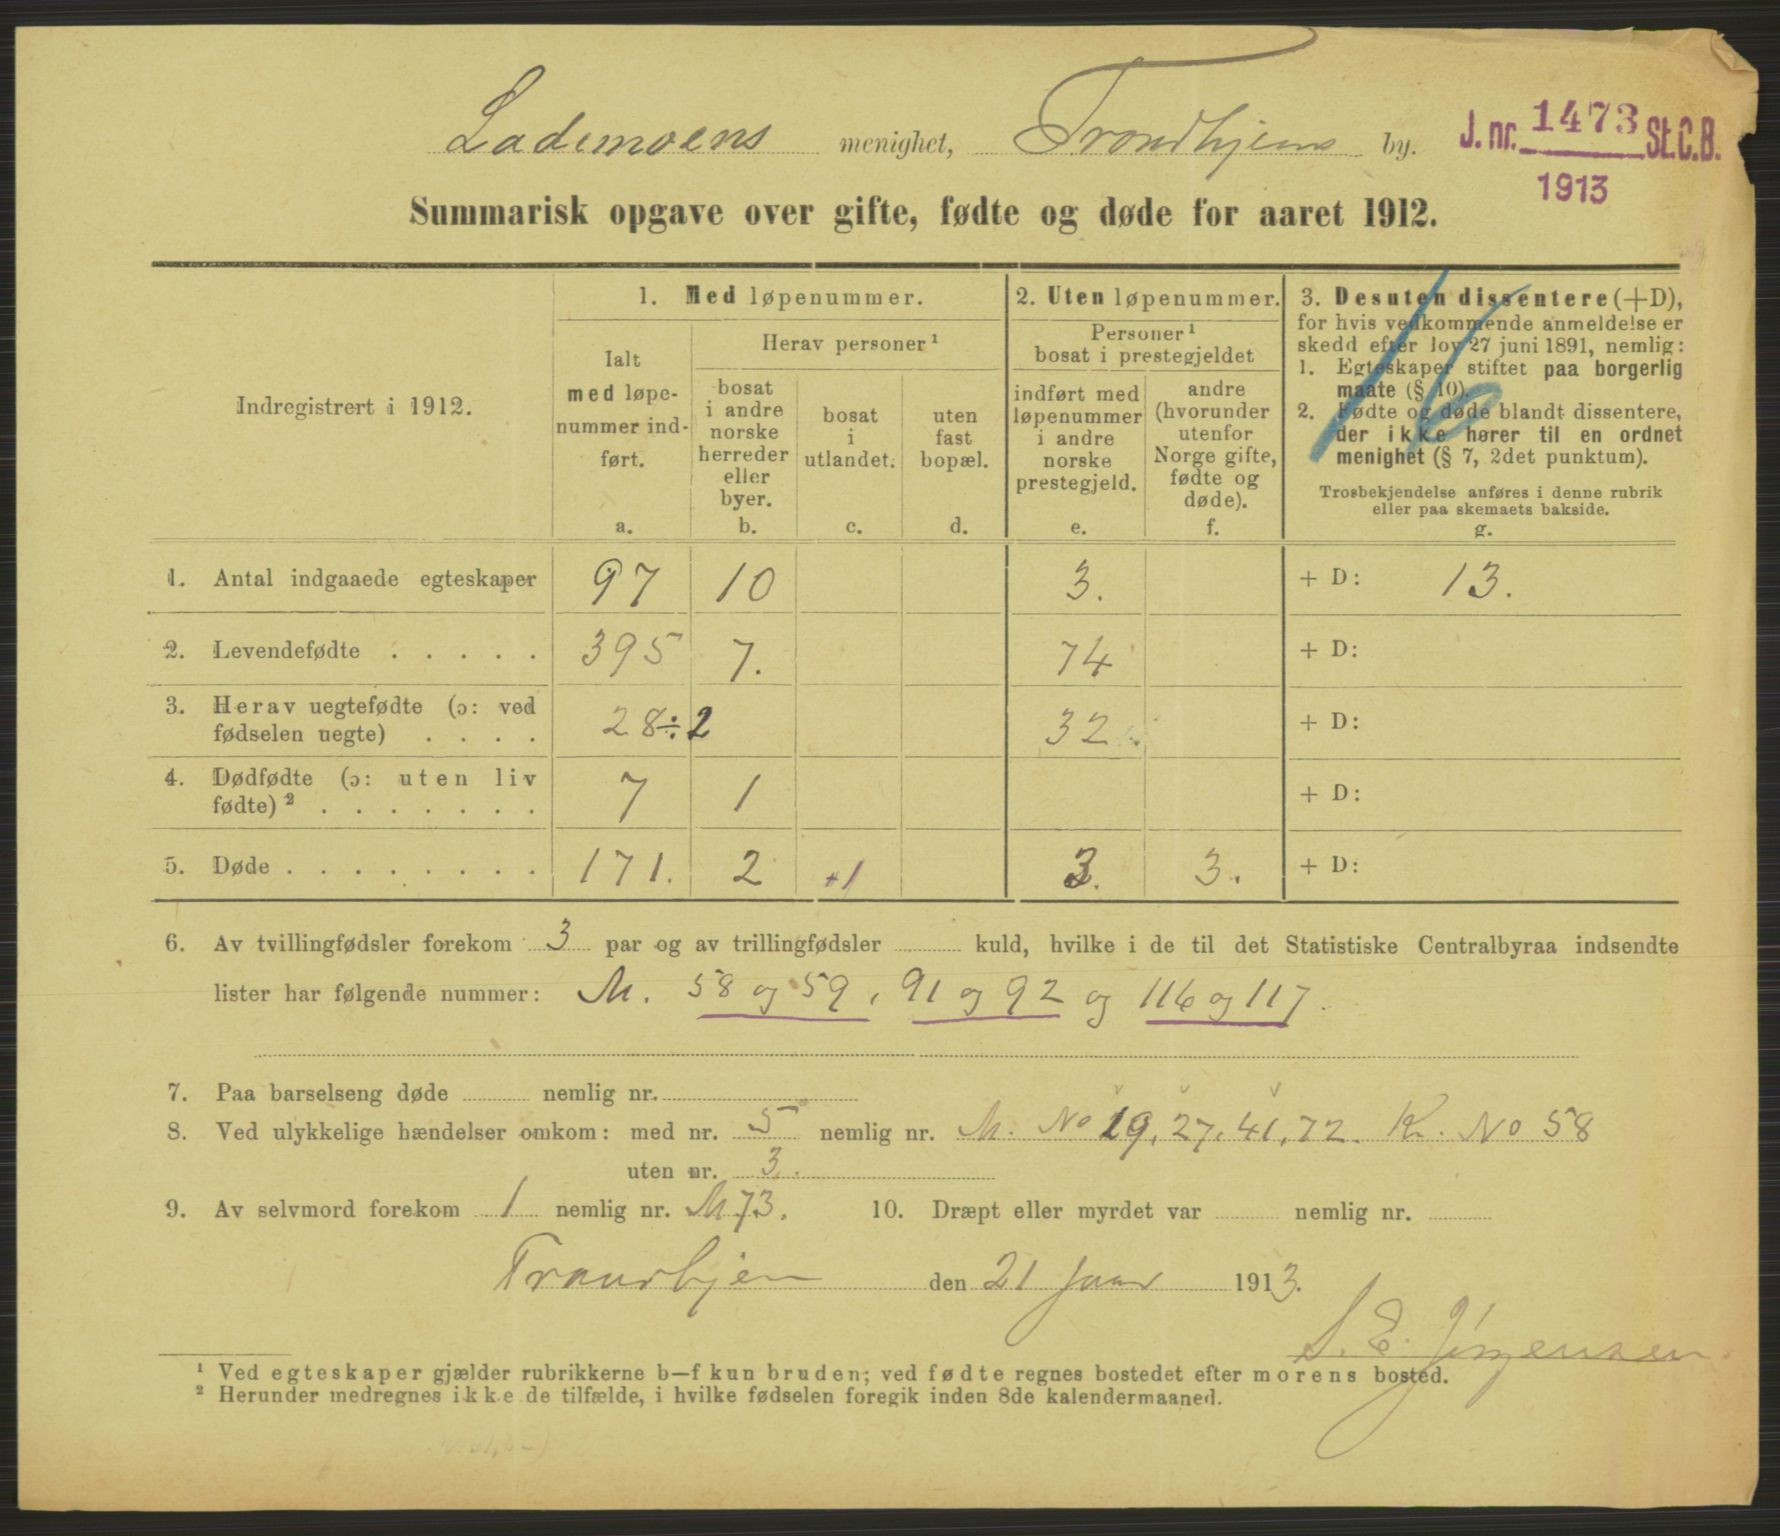 Lademoens menighet, Trondhjems by.
J. nr. 1473 St. C. B.
1913
Summarisk opgave over gifte, fødte og døde for aaret 1912.
Indregistrert i 1912.
1. Med løpenummer.
Ialt
med løpe-
nummer ind-
ført.
a.
Herav personer ¹
bosat
i andre
norske
herreder
eller
byer.
b.
bosat
i
utlandet.
c.
uten
fast
bopæl.
d.
2. Uten løpenummer.
Personer ¹
bosat i prestegjeldet
indført med
løpenummer
i andre
norske
prestegjeld.
e.
andre
(hvorunder
utenfor
Norge gifte,
fødte og
døde).
f.
3. Desuten dissentere (+D),
for hvis vedkommende anmeldelse er
skedd efter lov 27 juni 1891, nemlig:
1. Egteskaper stiftet paa borgerlig
maate (§ 10).
2. Fødte og døde blandt dissentere,
der ikke hører til en ordnet
menighet (§ 7, 2det punktum).
Trosbekjendelse anføres i denne rubrik
eller paa skemaets bakside.
g.
16
1. Antal indgaaede egteskaper 97 10 3. + D: 13.
2. Levendefødte . . . . . 395 7. 74 + D:
3. Herav uegtefødte (ɔ: ved
fødselen uegte) . . . . 28 ÷ 2 32 + D:
4. Dødfødte (ɔ: uten liv
fødte) ² . . . . . . . 7 1 + D:
5. Døde . . . . . . . . 171. 2 +1 3. 3. + D:
6. Av tvillingfødsler forekom 3 par og av trillingfødsler kuld, hvilke i de til det Statistiske Centralbyraa indsendte
lister har følgende nummer: M. 58 og 59, 91 og 92 og 116 og 117.
7. Paa barselseng døde nemlig nr.
8. Ved ulykkelige hændelser omkom: med nr. 5 nemlig nr. M. No 19, 27, 41, 72. K. No 58
uten nr. 3.
9. Av selvmord forekom 1 nemlig nr. M 73. 10. Dræpt eller myrdet var nemlig nr.
Trondhjem den 21 Janr 1913.
S. E. Jørgensen
¹ Ved egteskaper gjælder rubrikkerne b—f kun bruden; ved fødte regnes bostedet efter morens bosted.
² Herunder medregnes ikke de tilfælde, i hvilke fødselen foregik inden 8de kalendermaaned.